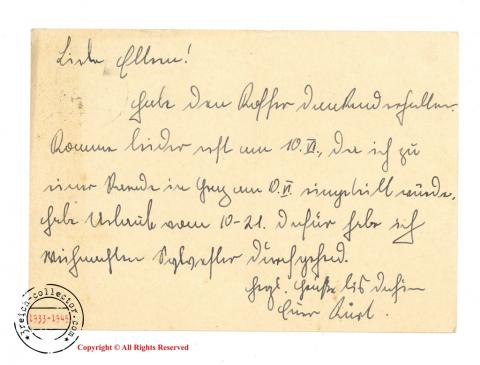 Liebe Eltern!
habe den Koffer dankend erhalten.
Komme leider erst am 10.XI., da ich zu
einer Runde in Graz am 10.XI eingeteilt wurde,
habe Urlaub vom 10-21. dafür habe ich
Weihnachten Sylvester durchgehend.
herzl. Grüße bis dahin
Euer Kurt.
3reich-collector.com
1933-1945
Copyright © All Rights Reserved